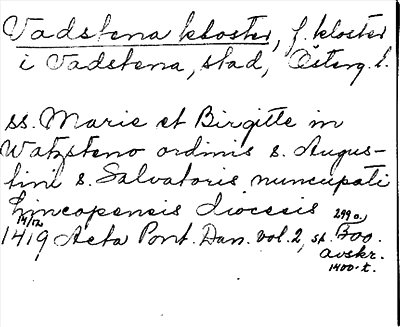 Vadstena kloster, f. kloster
i Vadstena, stad, Österg. l.
ss. Marie et Birgitte in
Watzsteno ordinis s. Augus-
tini s. Salvatoris nuncupati
Lincopensis diocesis
14/12 299 a,
1419 Acta Pont. Dan. vol. 2, s. 
avskr.
1400-t.